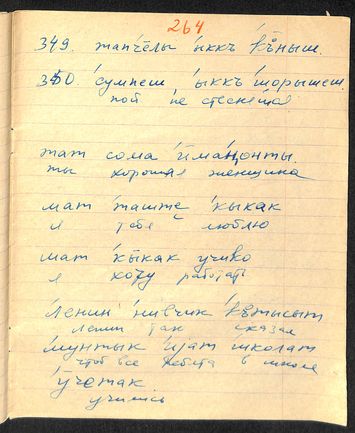 264
349. тапчёлы ыккъ къныш.
350. сумпеш ыккъ шорышеш.
пой не стесняйся
тат сома има
ты хорошая женщина
мат таште кыкак
я тебя люблю
мат кыкак учико
я хочу работать
Ленин нивчик
Ленин так сказал
мунтык пат школат
чтоб все ребята в школе
учетак.
учились